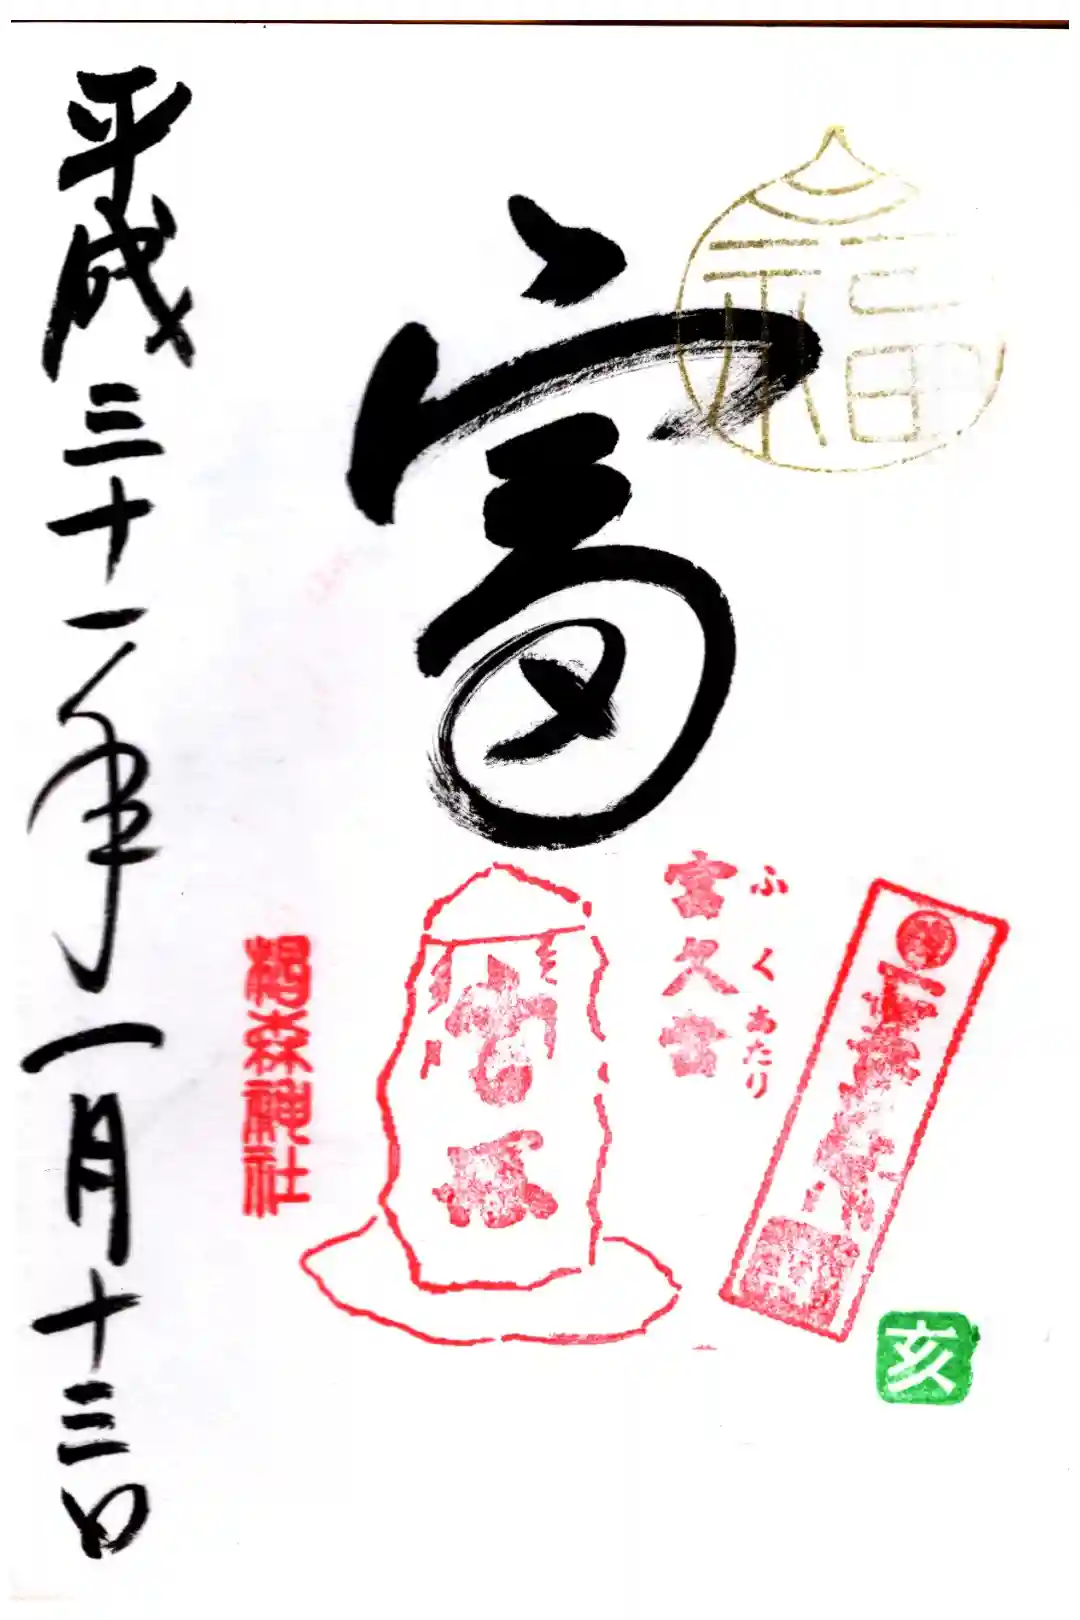 福
富
ふくあたり
富久富
富塚
椙森神社
亥
平成三十一年一月十三日